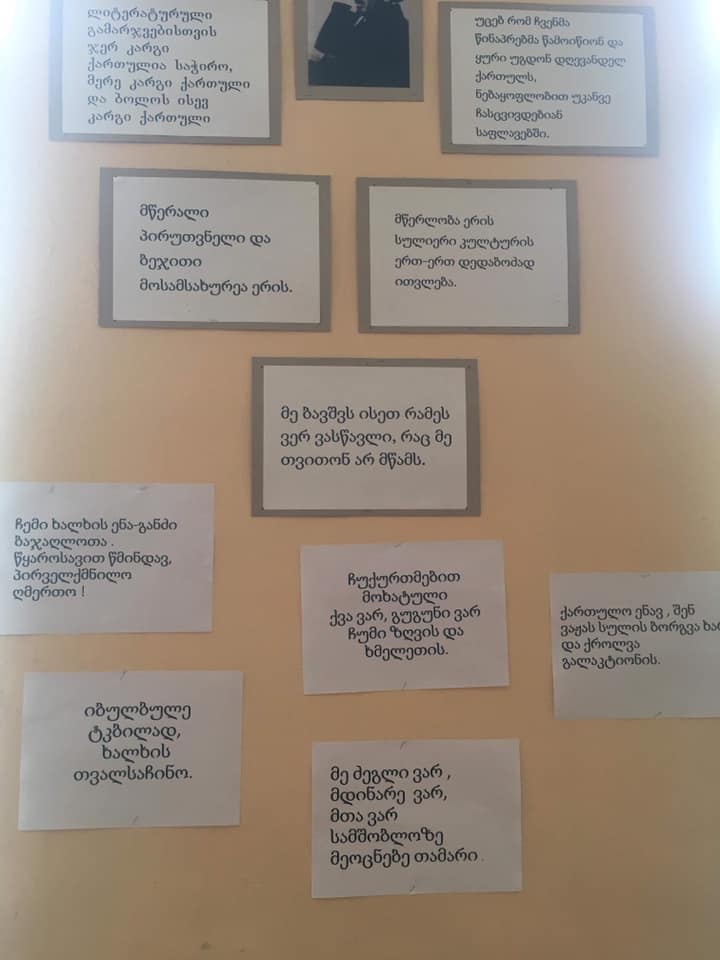 ლიტერატურული
გამარჯვებისთვის
ჯერ კარგი
ქართულია საჭირო,
მერე კარგი ქართული
და ბოლოს ისევ
კარგი ქართული
უცებ რომ ჩვენმა
წინაპრებმა წამოიწიონ და
ყური უგდონ დღევანდელ
ქართულს,
ნებაყოფლობით უკანვე
ჩასცვივდებიან
საფლავებში.
მწერალი
პირუთვნელი და
ბეჯითი
მოსამსახურეა ერის.
მწერლობა ერის
სულიერი კულტურის
ერთ-ერთ დედაბოძად
ითვლება.
მე ბავშვს ისეთ რამეს
ვერ ვასწავლი, რაც მე
თვითონ არ მწამს.
ჩემი ხალხის ენა-განძი
ბაჯაღლოთა .
წყაროსავით წმინდავ,
პირველქმნილო
ღმერთო !
ჩუქურთმებით
მოხატული
ქვა ვარ, გუგუნი ვარ
ჩემი ზღვის და
ხმელეთის.
ქართულო ენავ , შენ
ვაჟას სულის ბორგვა ხა
და ქროლვა
გალაკტიონის.
იბულბულე
ტკბილად,
ხალხის
თვალსაჩინო.
მე ძეგლი ვარ ,
მდინარე ვარ,
მთა ვარ
სამშობლოზე
მეოცნებე თამარი .